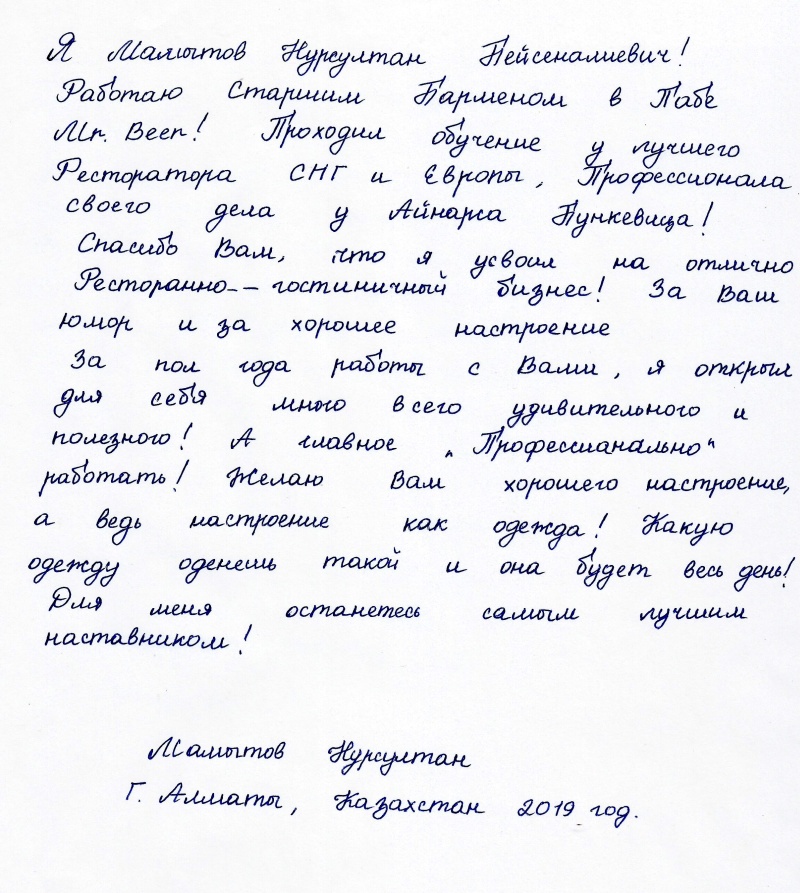 Я Мамытов Нурсултан Пейсеналиевич!
Работаю Старшим Барменом в Пабе
Mr. Beer! Проходил обучение у лучшего
Ресторатора СНГ и Европы, Профессионала
своего дела у Айнарса Пункевица!
Спасибо Вам, что я усвоил на отлично
Ресторанно-- гостиничный бизнес! За Ваш
юмор и за хорошее настроение
За пол года работы с Вами, я открыл
для себя много всего удивительного и
полезного! А главное "Профессианально"
работать! Желаю Вам хорошего настроение,
а ведь настроение как одежда! Какую
одежду оденешь такой и она будет весь день!
Для меня останетесь самым лучшим
наставником!
Мамытов Нурсултан
Г. Алматы, Казахстан 2019 год.